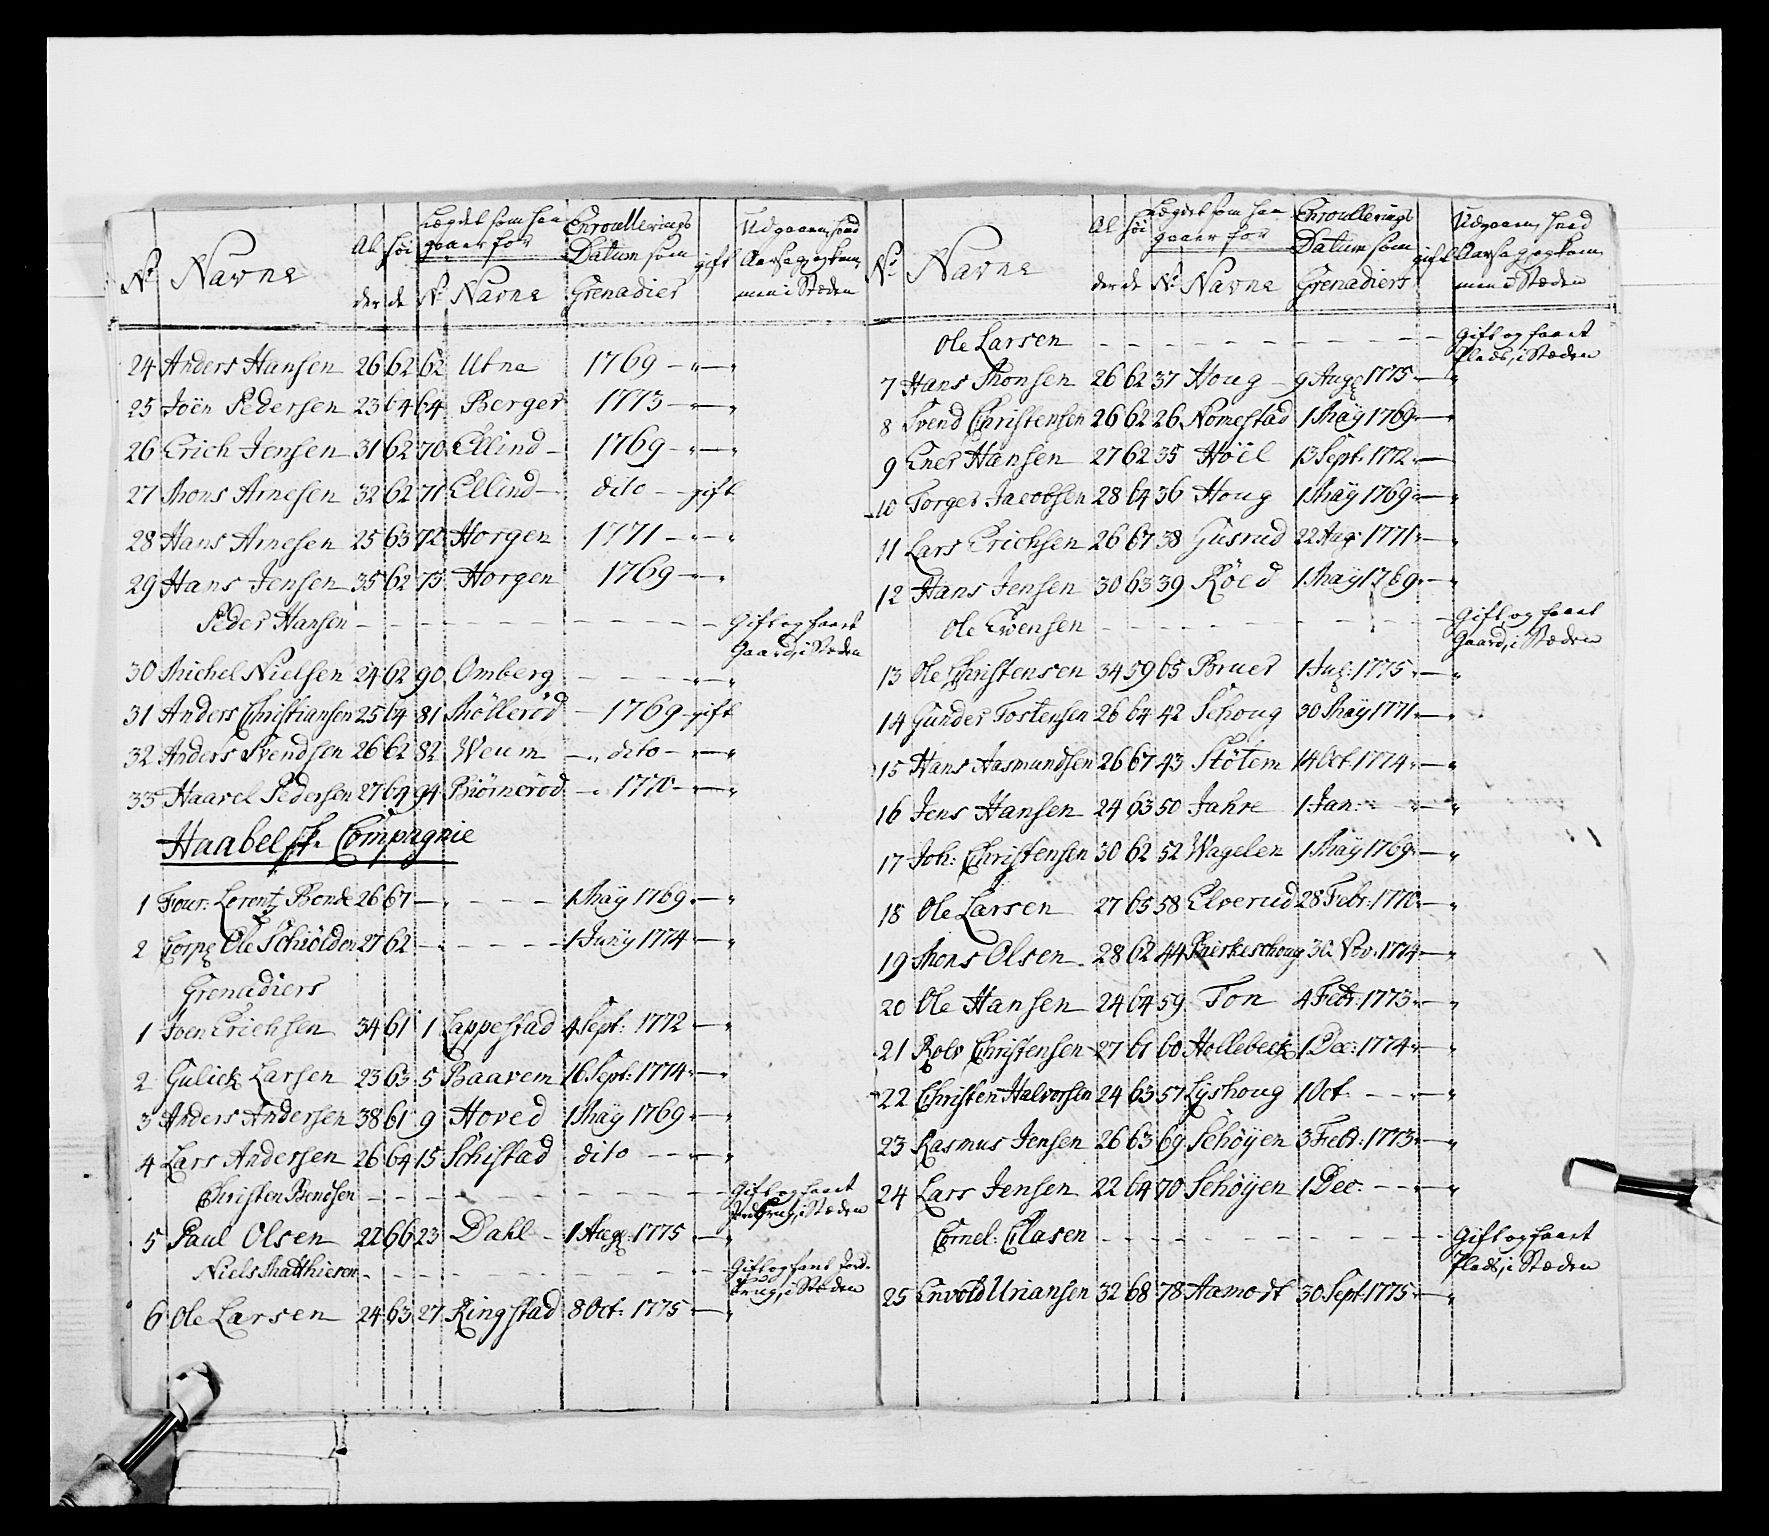 No Navne Al der Höi de Lægdet som han gaaer for No Navne Enroullerings Datum som Grenadier gift Udgaaen, hvad Aarsag, og kommen i Stæden
24 Anders Hansen 26 62 62 Utne 1769 - " - "
25 Joen Pedersen 23 64 64 Berger 1773 - " - "
26 Erich Jensen 31 62 70 Ellind - 1769 - " - "
27 Mons Arnesen 32 62 71 Ellind - dito - gift
28 Hans Arnesen 25 63 72 Horgen 1771 - " - "
29 Hans Jensen 35 62 75 Horgen 1769 - " - "
Peder Hansen - - - - - - - Gift og faaet Gaard, i Stæden
30 Michel Nielsen 24 62 90 Omberg - - - " - "
31 Anders Christiansen 25 64 81 Mölleröd - 1769 - gift
32 Anders Svendsen 26 62 82 Weum - " dito - " - "
33 Haarel Pedersen 27 64 94 Biörneröd - " 1770 - " - "
Haabelske Compagnie
1 Four: Lorentz Bonde 26 67 - " - - - 1 Maÿ 1769 " - "
2 Corp: Ole Schiölden 27 62 - " - - - 1 Junÿ 1774 " - "
Grenadiers
1 Joen Erichsen 34 61 1 Lappestad 4 Sept: 1772 " - "
2 Gulick Larsen 23 63 5 Baarem 16 Sept: 1774 " - "
3 Anders Andersen 38 61 9 Hoved 1 Maÿ 1769 " - "
4 Lars Andersen 26 64 15 Schistad dito - - " - "
Christen Bendsen - - - - - - - Gift og faaet Jordbrug, i Stæden
5 Paul Olsen 22 66 23 Dahl - 1 Aug: 1775 " - "
Niels Matthiesen - - - - - - - Gift og faaet Jordbrug, i Stæden
6 Ole Larsen 24 63 27 Ringstad 8 Oct: 1775 " - "
No Navne Al der Höi de Lægdet som han gaaer for No Navne Enroullerings Datum som Grenadiers gift Udgaaen, hvad Aarsag, og kommen i Stæden
Ole Larsen - - - - - - - Gift og faaet Plads, i Stæden
7 Hans Monsen 26 62 37 Houg - 9 Aug: 1775 " - "
8 Svend Christensen 26 62 26 Nomestad 1 Maÿ 1769 " - "
9 Ener Hansen 27 62 35 Höÿl 13 Sept: 1772 " -
10 Torger Jacobsen 28 64 36 Houg 1 Maÿ 1769 " - "
11 Lars Erichsen 26 67 38 Gusrud 22 Aug: 1771 " - "
12 Hans Jensen 30 63 39 Röed 1 Maÿ 1769 " - "
Ole Evensen - - - - - - - Gift og faaet Gaard, i Stæden
13 Ole Christensen 34 59 65 Bruer 1 Aug: 1775 " - "
14 Gunder Tostensen 26 64 42 Schoug 30 Maÿ 1771 " - "
15 Hans Aasmundsen 26 67 43 Stötem 14 Oct: 1774 " - "
16 Jens Hansen 24 63 50 Jahre 1 Jan: " - " - "
17 Joh: Christensen 30 62 52 Wagelen 1 Maÿ 1769 " - "
18 Ole Larsen 27 65 58 Elverud 28 Febr: 1770 " - "
19 Mons Olsen 28 62 44 Mierkeschoug 30 Nov: 1774 " - "
20 Ole Hansen 24 64 59 Ton 4 Febr: 1773 " - "
21 Rolv Christensen 27 61 60 Hollebeck 1 Dec: 1774 " - "
22 Christen Halvorsen 24 63 57 Lÿshoug 1 Oct: - - " - "
23 Rasmus Jensen 26 63 69 Schöÿen 3 Febr: 1773 " - "
24 Lars Jensen 22 64 70 Schöÿen 1 Dec: - - " - "
Cornel: Clasen - - - - - - - Gift og faaet Plads, i Stæden
25 Envold Uriansen 32 68 78 Aamodt 30 Sept: 1775 " - "